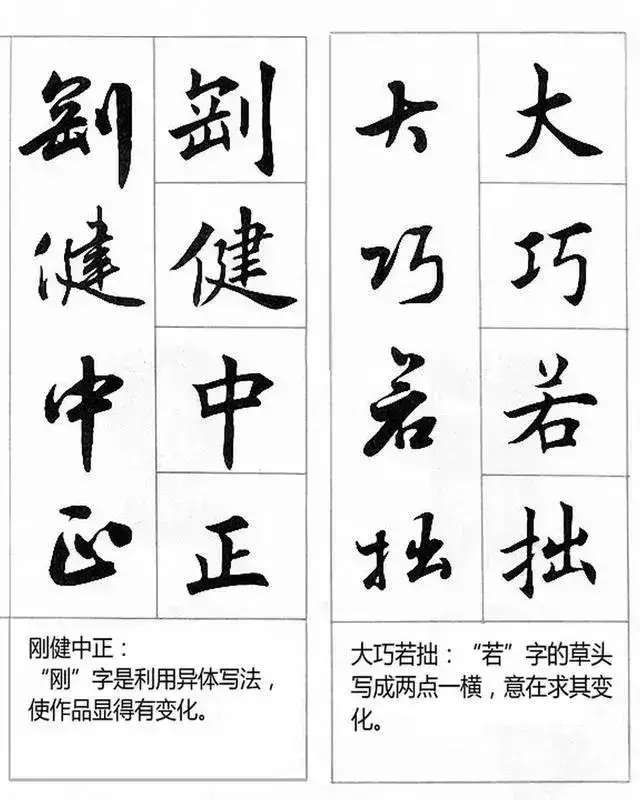 剛健中正
剛健中正
刚健中正：
“刚”字是利用异体写法，
使作品显得有变化。
大巧若拙
大巧若拙
大巧若拙：“若”字的草头
写成两点一横，意在求其变
化。